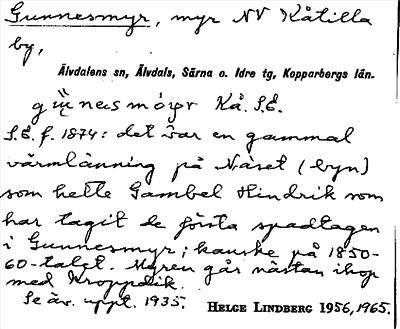 Gunnesmyr, myr NV Kåtilla
by,
Älvdalens sn, Älvdals, Särna o. Idre tg, Kopparbergs län.
Kå. S.E.
S.E. f. 1874: det var en gammal
värmlänning på Näset (byn)
som hette Gambel Hindrik som
har tagit de första spadtagen
i Gunnesmyr; kanske på 1850-
60-talet. Myren går nästan ihop
med Kroppdik.
Se äv. uppt. 1935. HELGE LINDBERG 1956, 1965.